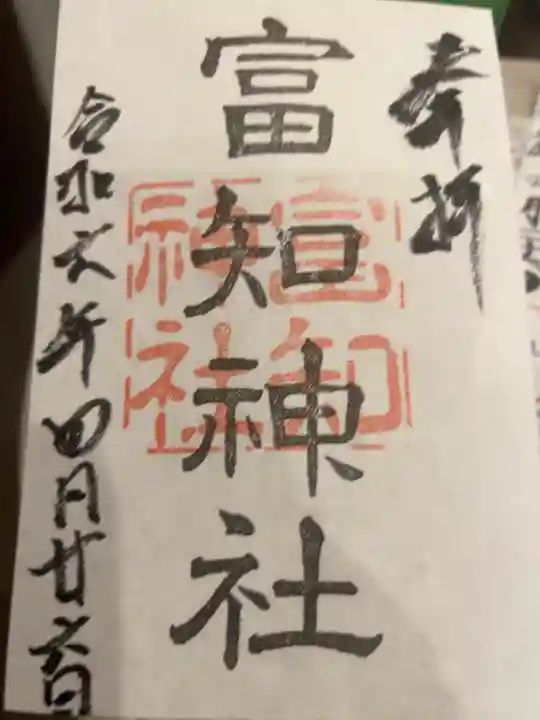 奉拝
富知神社
富知神社
令和六年四月廿六日